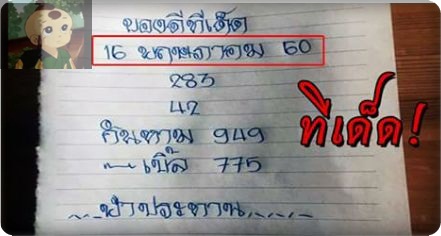 ของดีทีเด็ด
16 พฤษภาคม 60
283
42
กันหาม 949
--- เบิ้ล 775
ฟ้าประทาน
ทีเด็ด!